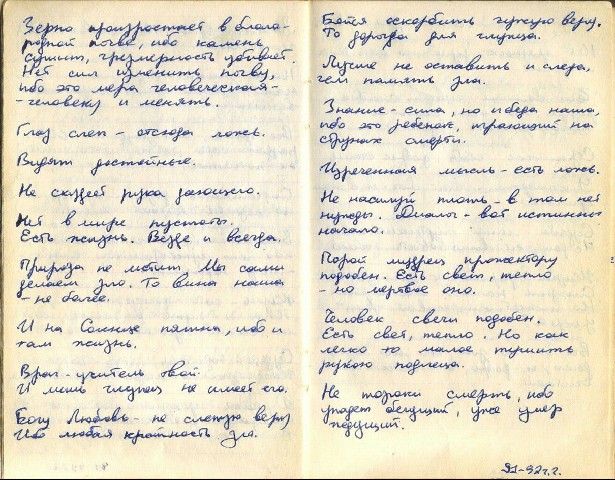 Зерно произрастает в благо-
родной почве, ибо камень
сушит, чрезмерность убивает.
Нет сил изменить почву,
ибо это мера человеческая -
- человеку и менять.
Глаз слеп - отсюда ложь.
Видят достойные.
Не скудеет рука дающего.
Нет в мире пустоты.
Есть жизнь. Везде и всегда.
Природа не мстит. Мы сами
делаем зло. То вина наша
- не более.
И на Солнце пятна, ибо и
там жизнь.
Враг - учитель твой.
И лишь глупец не имеет его.
Богу Любовь - не слепую веру
Ибо любая крайность зло.
Бойся оскорбить чужую веру.
То дорога для глупца.
Лучше не оставить и следа,
чем память зла.
Знание - сила, но и беда наша,
ибо это ребенок, играющий на
струнах смерти.
Изреченная мысль - есть ложь.
Не насилуй плоть - в том нет
нужды. Диалог - вот истинны
начало.
Порой мудрец прожектору
подобен. Есть свет, тепло
- но мертвое оно.
Человек свечи подобен.
Есть свет, тепло. Но как
легко то малое тушить
рукою подлеца.
Не торопи смерть, ибо
упадет бегущий, уже умер
ждущий.
91-92 г.г.